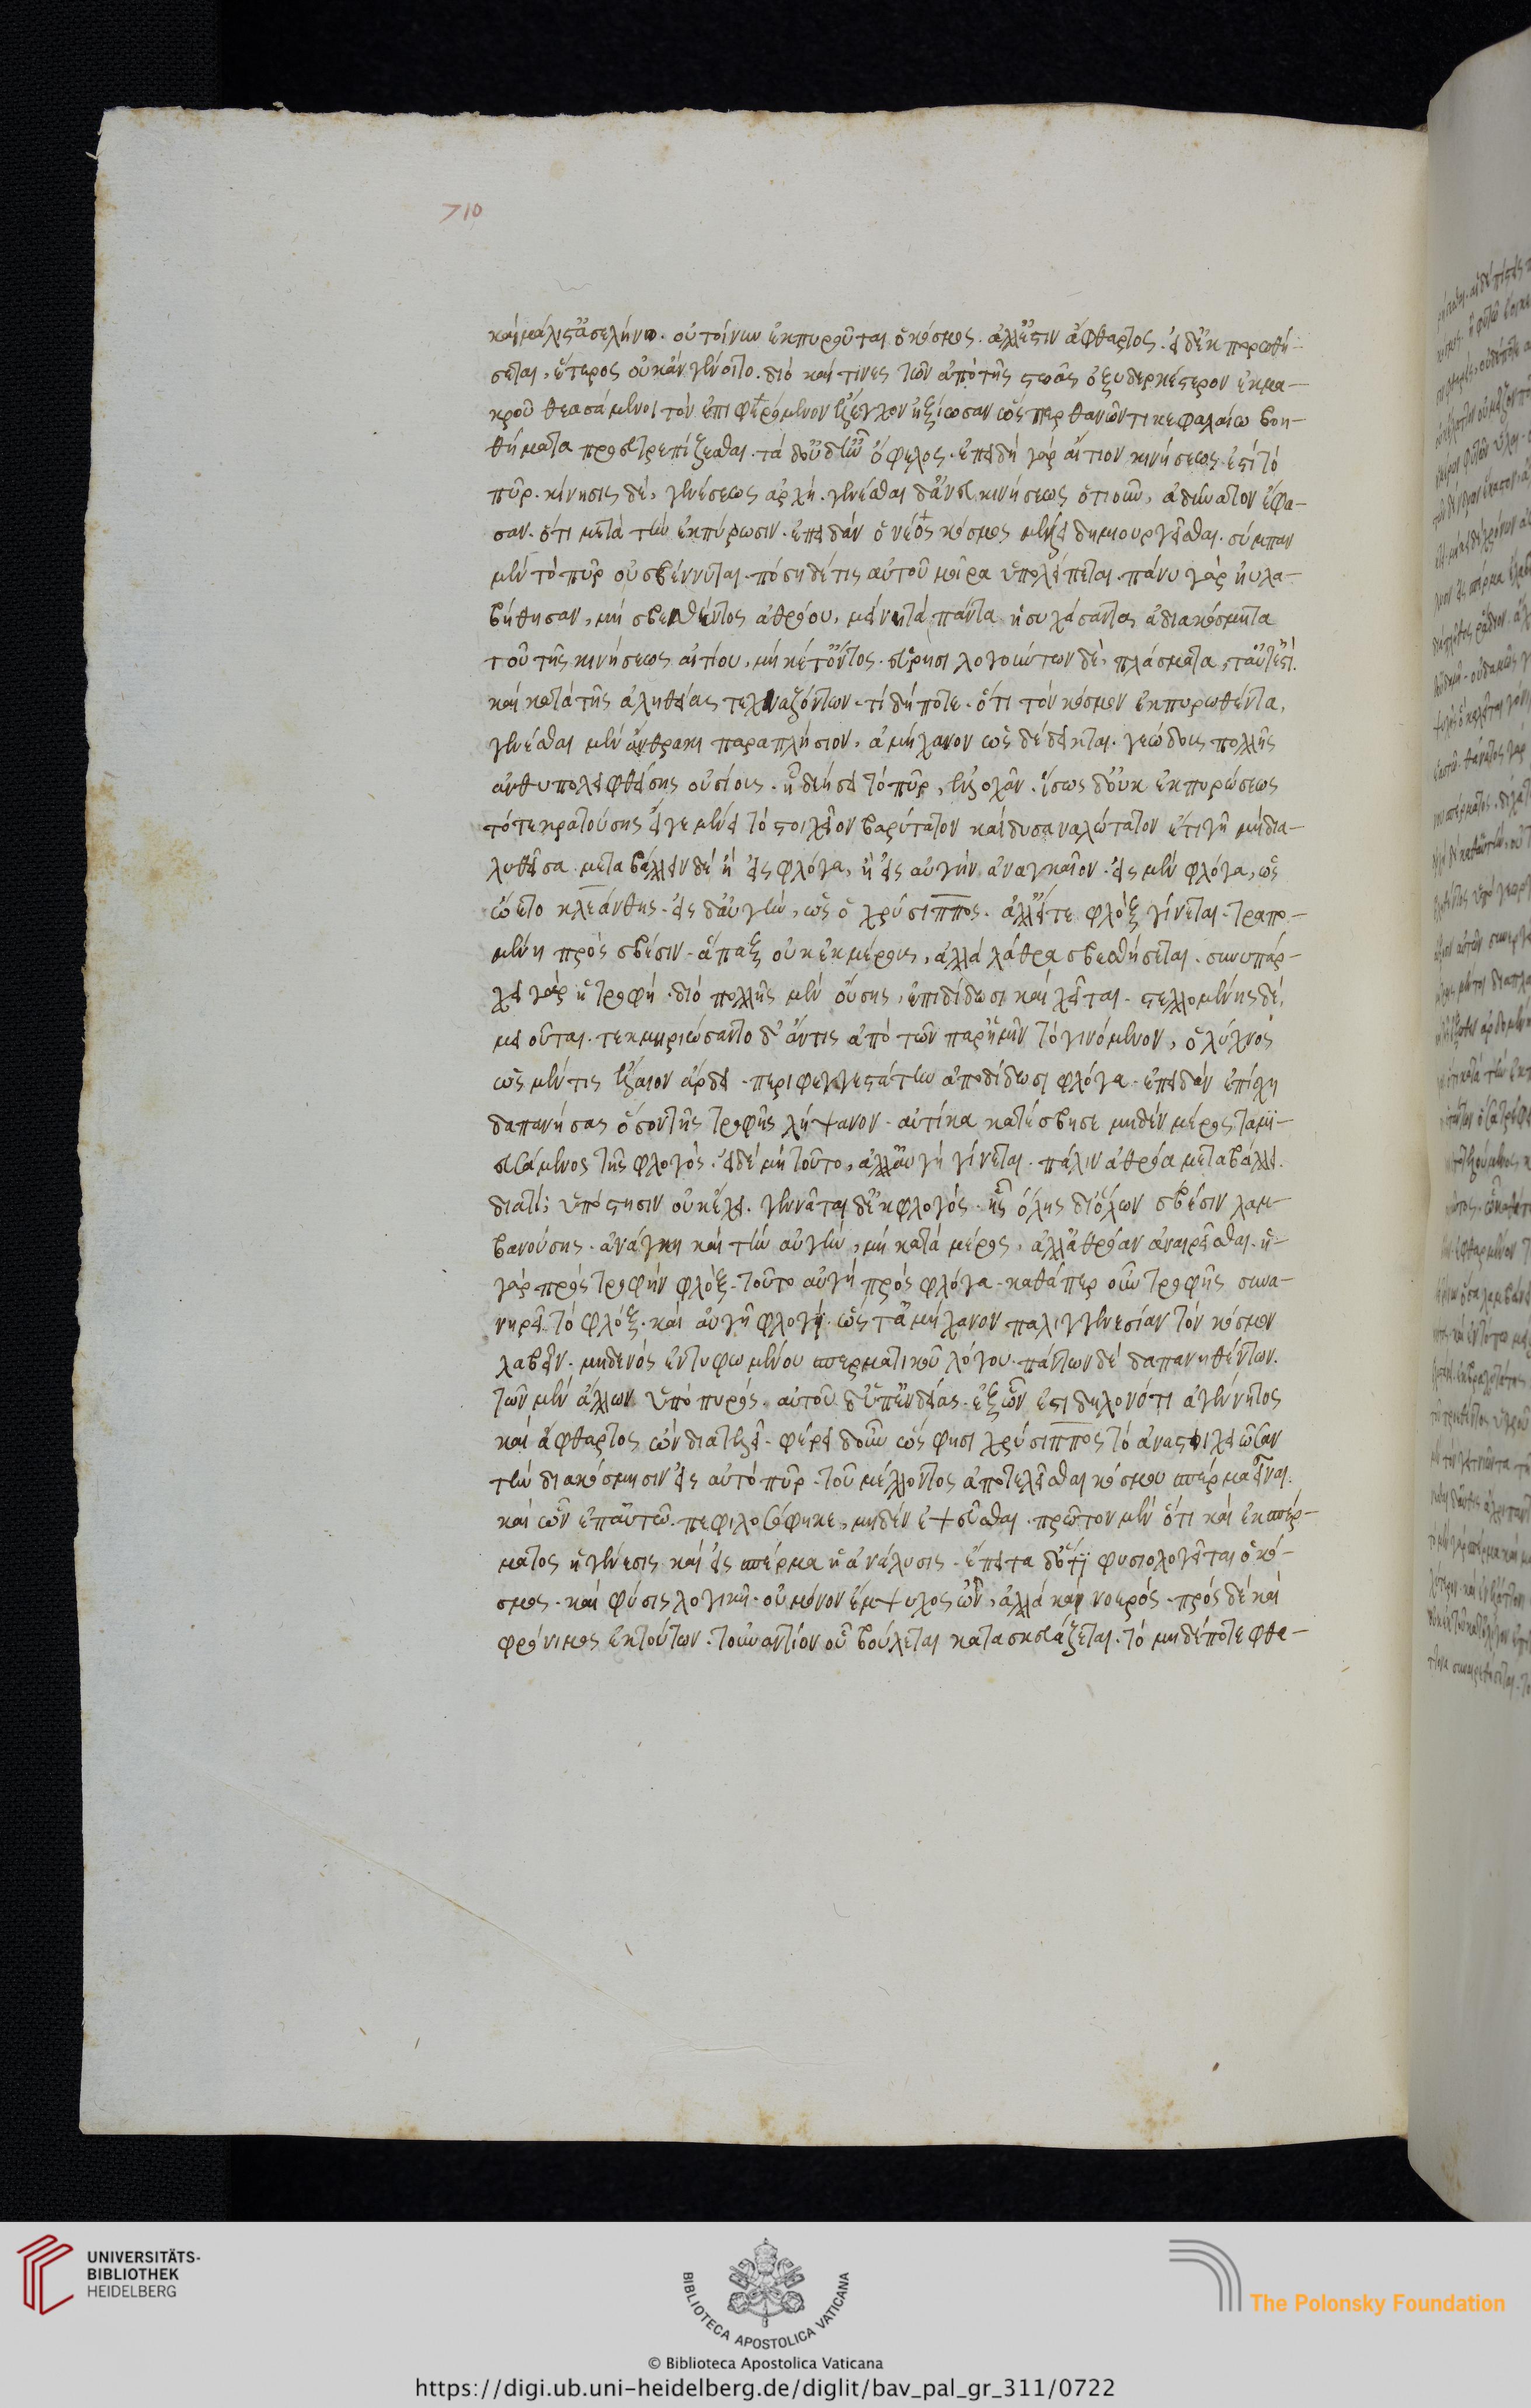 710
καὶ μάλιστα σελήνη. οὐ τοίνυν ἐκπυροῦται ὁ κόσμος. ἀλλ' ἔστιν ἄφθαρτος. εἰ δ' ἐκπυρωθή-
σεται, ἕτερος οὐκ ἂν γένοιτο. διὸ καί τινες τῶν ἀπὸ τῆς στοᾶς ὀξυδερκέστερον ἐκ μα-
κροῦ θεασάμενοι τὸν ἐπιφερόμενον ἔλεγχον ἠξίωσαν ὥσπερ θανῶντι κεφαλαίω βοη-
θήματα προευτρεπίζεσθαι. τὰ δ' οὐδὲν ἦν ὄφελος. ἐπειδὴ γὰρ αἴτιον κινήσεως ἐστὶ τὸ
πῦρ. κίνησις δὲ, γενέσεως ἀρχή. γενέσθαι δ' ἄνευ κινήσεως ὁτιοῦν, ἀδύνατον ἔφα-
σαν. ὅτι μετὰ τὴν ἐκπύρωσιν. ἐπειδὰν ὁ νέος κόσμος μέλλη δημιουργεῖσθαι. σύμπαν
μὲν τὸ πῦρ οὐ σβέννυται. πόση δέ τις αὐτοῦ μοῖρα ὑπολείπεται. πάνυ γὰρ ηὐλα-
βήθησαν, μὴ σβεσθέντος ἀθρόου, μείνῃ τὰ πάντα ἡσυχάσαντα ἀδιακόσμητα
τοῦ τῆς κινήσεως αἰτίου, μηκέτ' ὄντος. εὑρησιλογούντων δὲ πλάσματα ταῦτ' ἐστὶ.
καὶ κατὰ τῆς ἀληθείας τεχναζόντων. τί δήποτε. ὅτι τὸν κόσμον ἐκπυρωθέντα,
γενέσθαι μὲν ἄνθρακι παραπλήσιον, ἀμήχανον ὡς δέδεικται. γεώδους πολλῆς
ἀνθυπολειφθείσης οὐσίας. ᾗ δεήσει τὸ πῦρ, ἐλλοχᾶν. ἴσως δ' οὐκ ἐκπυρώσεως
τότε κρατούσης εἴγε μένει τὸ στοιχεῖον βαρύτατον καὶ δυσαναλώτατον ἔτι γῆ μὴ δια-
λυθεῖσα. μεταβάλλειν δὲ ἢ εἰς φλόγα, ἢ εἰς αὐγὴν ἀναγκαῖον. εἰς μὲν φλόγα, ὡς
ᾤετο κλεάνθης. εἰς δ' αὐγὴν, ὡς ὁ χρύσιππος. ἀλλ' εἴτε φλὸξ γίνεται. τραπο-
μένη πρὸς σβέσιν. ἅπαξ οὐκ ἐκ μέρους, ἀλλὰ λάθρα σβεσθήσεται. συνυπάρ-
χει γὰρ ἡ τροφή. διὸ πολλῆς μὲν οὔσης, ἐπιδίδωσι καὶ χεῖται. στελλομένης δὲ,
μειοῦται. τεκμηριώσαιτο δ' ἄν τις ἀπὸ τῶν παρ' ἡμῖν τὸ γινόμενον, ὁ λύχνος
ὡς μέν τις ἔλαιον ἄρδει. περιφεγγεστάτην ἀποδίδωσι φλόγα. ἐπειδὰν ἐπίσχη
δαπανήσας ὅσον τῆς τροφῆς λήψανον. αὐτίκα κατέσβησε μηδὲν μέρος ταμι-
ευσάμενος τῆς φλογός. εἰ δὲ μὴ τοῦτο, ἀλλ' αὐγὴ γίνεται. πάλιν ἀθρόα μεταβάλλει.
διατί; ὑπόστησιν οὐκ ἔχει. γεννᾶται δ' ἐκ φλογὸς. ἧς ὅλης δι' ὅλων σβέσιν λαμ-
βανούσης. ἀνάγκη καὶ τὴν αὐγὴν, μὴ κατὰ μέρος, ἀλλ' ἀθρόαν ἀναιρεῖσθαι. ἣ
γὰρ πρὸς τροφὴν φλὸξ. τοῦτο αὐγὴ πρὸς φλόγα. καθάπερ οὖν τροφῆς συνα-
νηρεῖτο φλόξ. καὶ αὐγὴ φλογὶ. ὥστ' ἀμήχανον παλιγγενεσίαν τὸν κόσμον
λαβεῖν. μηδενὸς ἐντυφωμένου σπερματικοῦ λόγου. πάντων δὲ δαπανηθέντων.
τῶν μὲν ἄλλων ὑπὸ πυρός. αὐτοῦ δ' ὑπ' ἐνδείας. ἐξ ὧν ἐστι δηλονότι ἀγένητος
καὶ ἄφθαρτος ὢν διατελεῖ. φέρε δ' οὖν ὥς φησι χρύσιππος τὸ ἀναστοιχειῶσαν
τὴν διακόσμησιν εἰς αὐτὸ πῦρ. τοῦ μέλλοντος ἀποτελεῖσθαι κόσμου σπέρμα εἶναι.
καὶ ὧν ἐπ' αὐτῶ. πεφιλοσόφηκε, μηδὲν ἐψεῦσθαι. πρῶτον μὲν ὅτι καὶ ἐκ σπέρ-
ματος ἡ γένεσις καὶ εἰς σπέρμα ἡ ἀνάλυσις. ἔπειτα δ' ὅτι φυσιολογεῖται ὁ κό-
σμος. καὶ φύσις λογικὴ. οὐ μόνον ἔμψυχος ὢν, ἀλλὰ καὶ νοερός. πρὸς δὲ καὶ
φρόνιμος ἐκ τούτων. τοὐναντίον οὗ βούλεται κατασκευάζεται. τὸ μηδέποτε φθα-
UNIVERSITÄTS-
BIBLIOTHEK
HEIDELBERG
BIBLIOTECA APOSTOLICA VATICANA
The Polonsky Foundation
© Biblioteca Apostolica Vaticana
https://digi.ub.uni-heidelberg.de/diglit/bav_pal_gr_311/0722